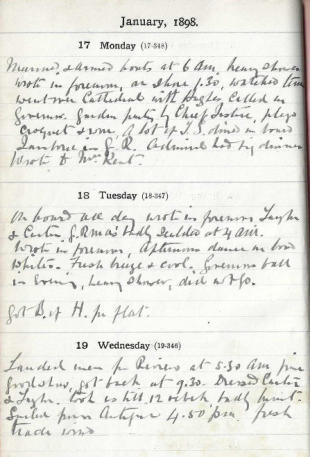 January, 1898.
17 Monday (17-348)
Manned & armed boats at 6 AM, heavy shower
wrote in forenoon, on shore 1.30, watched
went over Cathedral with Hughes Called on
Governor. Garden party by Chief Justice, played
croquet & A lot of dined on board
in G. R. Admiral had big dinner
Wrote to Mrs Kent.
18 Tuesday (18-347)
On board all day wrote in forenoon
& Carter, badly scalded at 4 AM.
Wrote in forenoon, Afternoon dance on board
Fresh breeze & cool. Governors ball
in Evening, heavy shower, did not go.
Got B. of H. flat.
19 Wednesday (19-346)
Landed men for Review at 5.30 AM fine
good show, got back at 9.30. Dressed Carter
& Cook is till 12 oclock badly burnt.
Sailed from Antigua 4.50 pm. fresh
trade wind